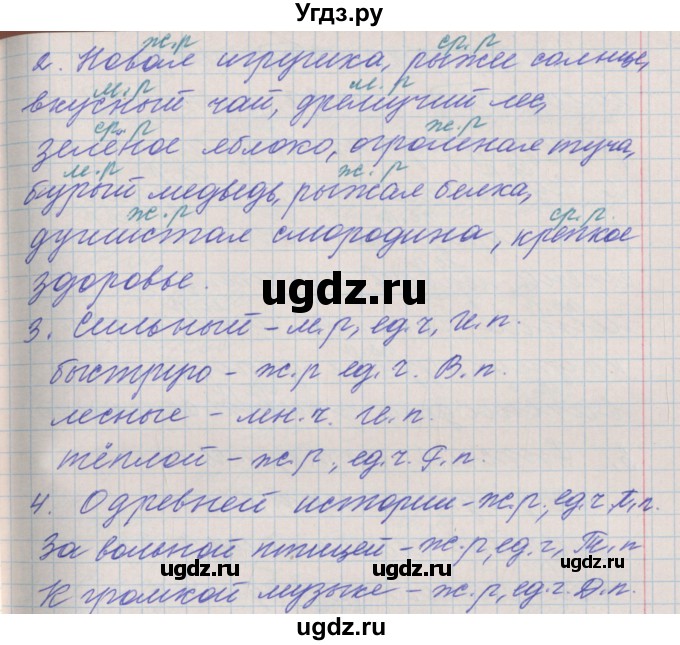 Угдз.ру
ж.р ср.р
2. Новая игрушка, рыжее солнце,
м.р м.р
вкусный чай, дремучий лес,
ср.р ж.р
зелёное яблоко, огромная туча,
м.р ж.р
бурый медведь, рыжая белка,
ж.р ср.р.
душистая смородина, крепкое
здоровье.
ugdz.ru
3. Сильный – м.р, ед.ч, И.п.
быструю – ж.р ед.ч. В.п.
лесные – мн.ч. И.п.
тёплой – ж.р, ед.ч.
4. О древней истории – ж.р, ед.ч П.п.
За вольной птицей – ж.р, ед.ч, Т.п
ugdz.ru ugdz.ru ugdz.ru
К громкой музыке – ж.р, ед.ч. Д.п.
ugdz.ru